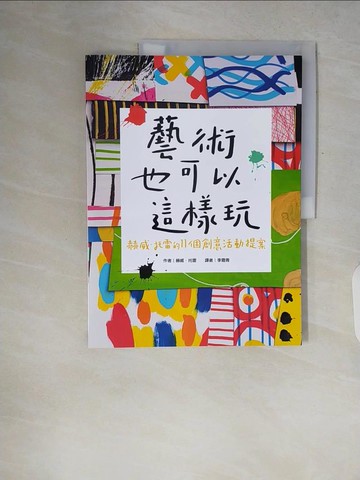 藝術
也可以
這樣玩
赫威.托雷的11個創意活動提案
作者｜赫威．托雷　譯者｜李雅雅